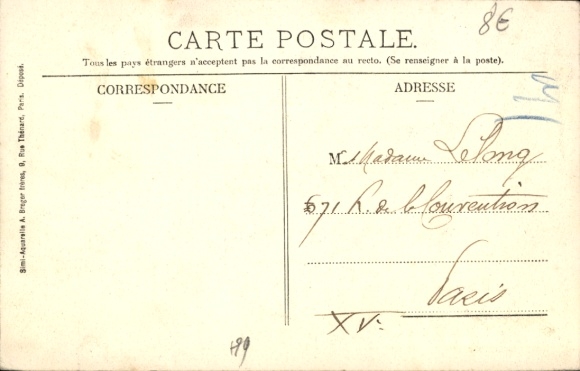 8€
CARTE POSTALE.
Tous les pays étrangers n'acceptent pas la correspondance au recto. (Se renseigner à la poste).
CORRESPONDANCE
ADRESSE
M Madame
71 R. de la Convention
Paris
XVe
Simi-Aquarelle A. Breger frères, 9, Rue Thénard, Paris. Déposé.